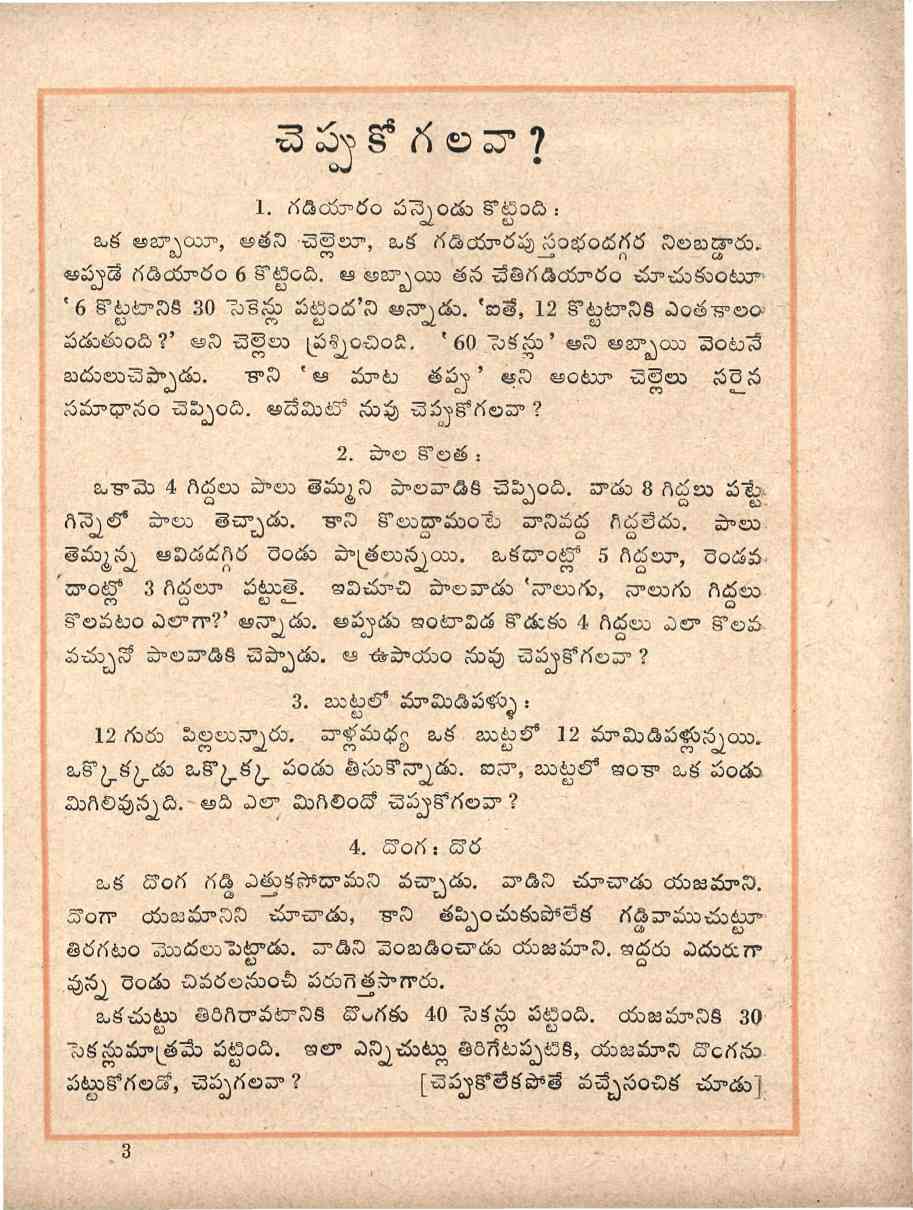 చెప్పుకోగలవా?
1. గడియారం పన్నెండు కొట్టింది :
ఒక అబ్బాయీ, అతని చెల్లెలూ, ఒక గడియారపు స్తంభందగ్గర నిలబడ్డారు.
అప్పుడే గడియారం 6 కొట్టింది. ఆ అబ్బాయి తన చేతిగడియారం చూచుకుంటూ
‘6 కొట్టటానికి 30 సెకెన్లు పట్టింద’ని అన్నాడు. ‘ఐతే, 12 కొట్టటానికి ఎంతకాలం
పడుతుంది?’ అని చెల్లెలు ప్రశ్నించింది. ‘60 సెకన్లు’ అని అబ్బాయి వెంటనే
బదులుచెప్పాడు. కాని ‘ఆ మాట తప్పు’ అని అంటూ చెల్లెలు సరైన
సమాధానం చెప్పింది. అదేమిటో నువు చెప్పుకోగలవా ?
2. పాల కొలత :
ఒకామె 4 గిద్దలు పాలు తెమ్మని పాలవాడికి చెప్పింది. వాడు 8 గిద్దలు పట్టే
గిన్నెలో పాలు తెచ్చాడు. కాని కొలుద్దామంటే వానివద్ద గిద్దలేదు. పాలు
తెమ్మన్న ఆవిడదగ్గిర రెండు పాత్రలున్నయి. ఒకదాంట్లో 5 గిద్దలూ, రెండవ
దాంట్లో 3 గిద్దలూ పట్టుతై. ఇవిచూచి పాలవాడు ‘నాలుగు, నాలుగు గిద్దలు
కొలవటం ఎలాగా?’ అన్నాడు. అప్పుడు ఇంటావిడ కొడుకు 4 గిద్దలు ఎలా కొలవ
వచ్చునో పాలవాడికి చెప్పాడు. ఆ ఉపాయం నువు చెప్పుకోగలవా ?
3. బుట్టలో మామిడిపళ్ళు :
12 గురు పిల్లలున్నారు. వాళ్లమధ్య ఒక బుట్టలో 12 మామిడిపళ్లున్నయి.
ఒక్కొక్కడు ఒక్కొక్క పండు తీసుకొన్నాడు. ఐనా, బుట్టలో ఇంకా ఒక పండు
మిగిలివున్నది. అది ఎలా మిగిలిందో చెప్పుకోగలవా ?
4. దొంగ : దొర
ఒక దొంగ గడ్డి ఎత్తుకపోదామని వచ్చాడు. వాడిని చూచాడు యజమాని.
దొంగా యజమానిని చూచాడు, కాని తప్పించుకుపోలేక గడ్డివాముచుట్టూ
తిరగటం మొదలుపెట్టాడు. వాడిని వెంబడించాడు యజమాని. ఇద్దరు ఎదురుగా
వున్న రెండు చివరలనుంచీ పరుగెత్తసాగారు.
ఒకచుట్టు తిరిగిరావటానికి దొంగకు 40 సెకన్లు పట్టింది. యజమానికి 30
సెకన్లుమాత్రమే పట్టింది. ఇలా ఎన్నిచుట్లు తిరిగేటప్పటికి, యజమాని దొంగను
పట్టుకోగలడో, చెప్పగలవా ? [చెప్పుకోలేకపోతే వచ్చేసంచిక చూడు]
3